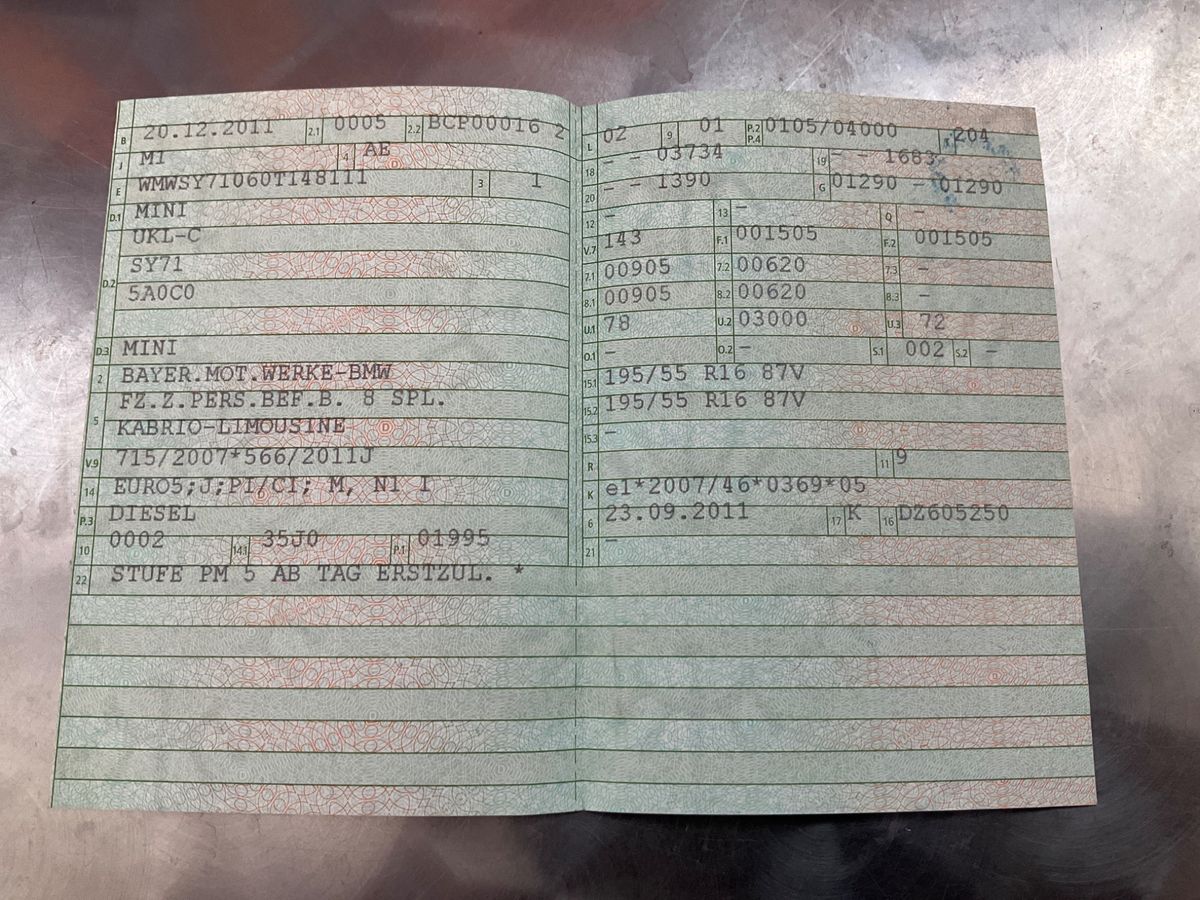 B 20.12.2011 2.1 0005 2.2 BCP00016 2
J M1 4 AE
E WMWSY71060T148111 3 1
D.1 MINI
UKL-C
D.2 SY71
5A0C0
D.3 MINI
2 BAYER.MOT.WERKE-BMW
5 FZ.Z.PERS.BEF.B. 8 SPL.
KABRIO-LIMOUSINE
V.9 715/2007*566/2011J
14 EURO5;J;PI/CI; M, N1 I
P.3 DIESEL
10 0002 14.1 35J0 P.1 01995
22 STUFE PM 5 AB TAG ERSTZUL. *
L 02 9 01 P.2 P.4 0105/04000 T 204
18 - - 03734 19 - - 1683
20 - - 1390 G 01290 - 01290
12 - 13 - Q -
V.7 143 F.1 001505 F.2 001505
7.1 00905 7.2 00620 7.3 -
8.1 00905 8.2 00620 8.3 -
U.1 78 U.2 03000 U.3 72
O.1 - O.2 - S.1 002 S.2 -
15.1 195/55 R16 87V
15.2 195/55 R16 87V
15.3 -
R 11 9
K e1*2007/46*0369*05
6 23.09.2011 17 K 16 DZ605250
21 -